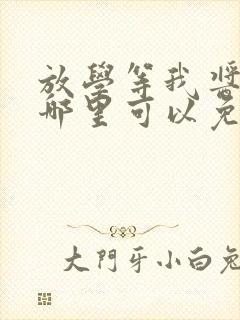 放學等我醬
哪里可以免
大門牙小白兔